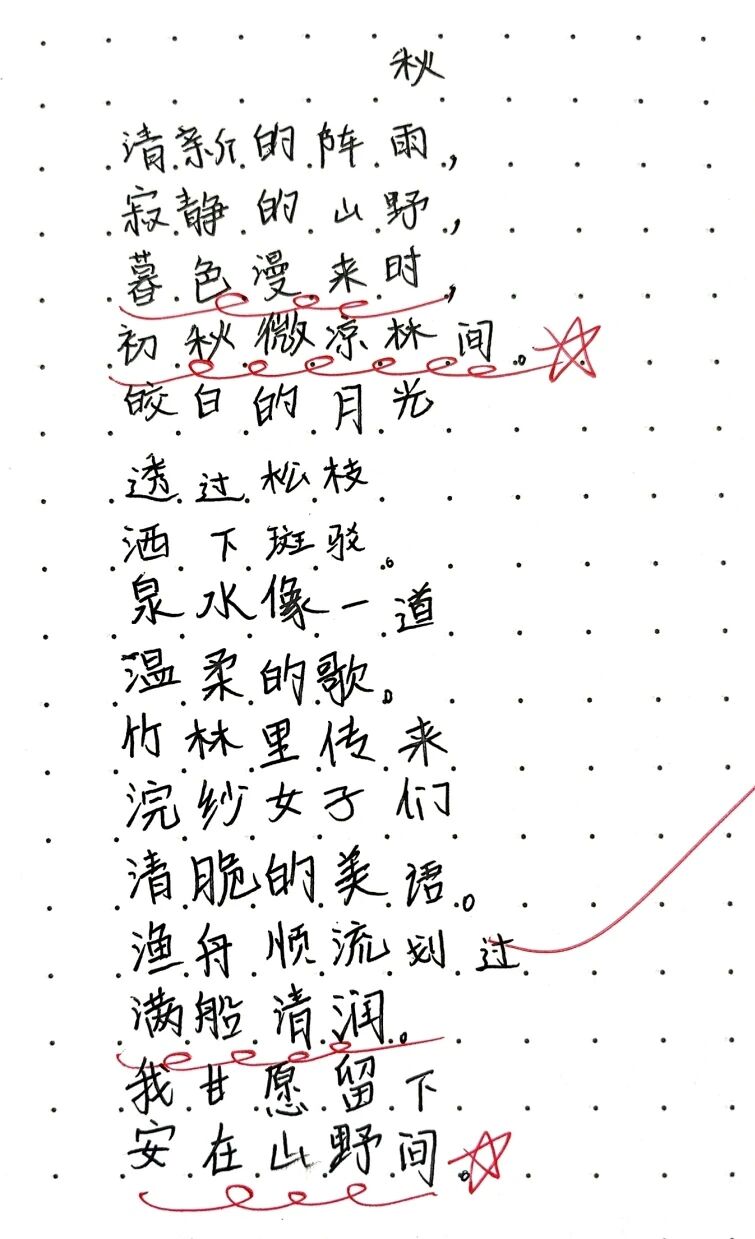 秋
清新的阵雨，
寂静的山野，
暮色漫来时，
初秋微凉林间。
皎白的月光
透过松枝
洒下斑驳。
泉水像一道
温柔的歌。
竹林里传来
浣纱女子们
清脆的美语。
渔舟顺流划过
满船清润。
我甘愿留下
安在山野间。